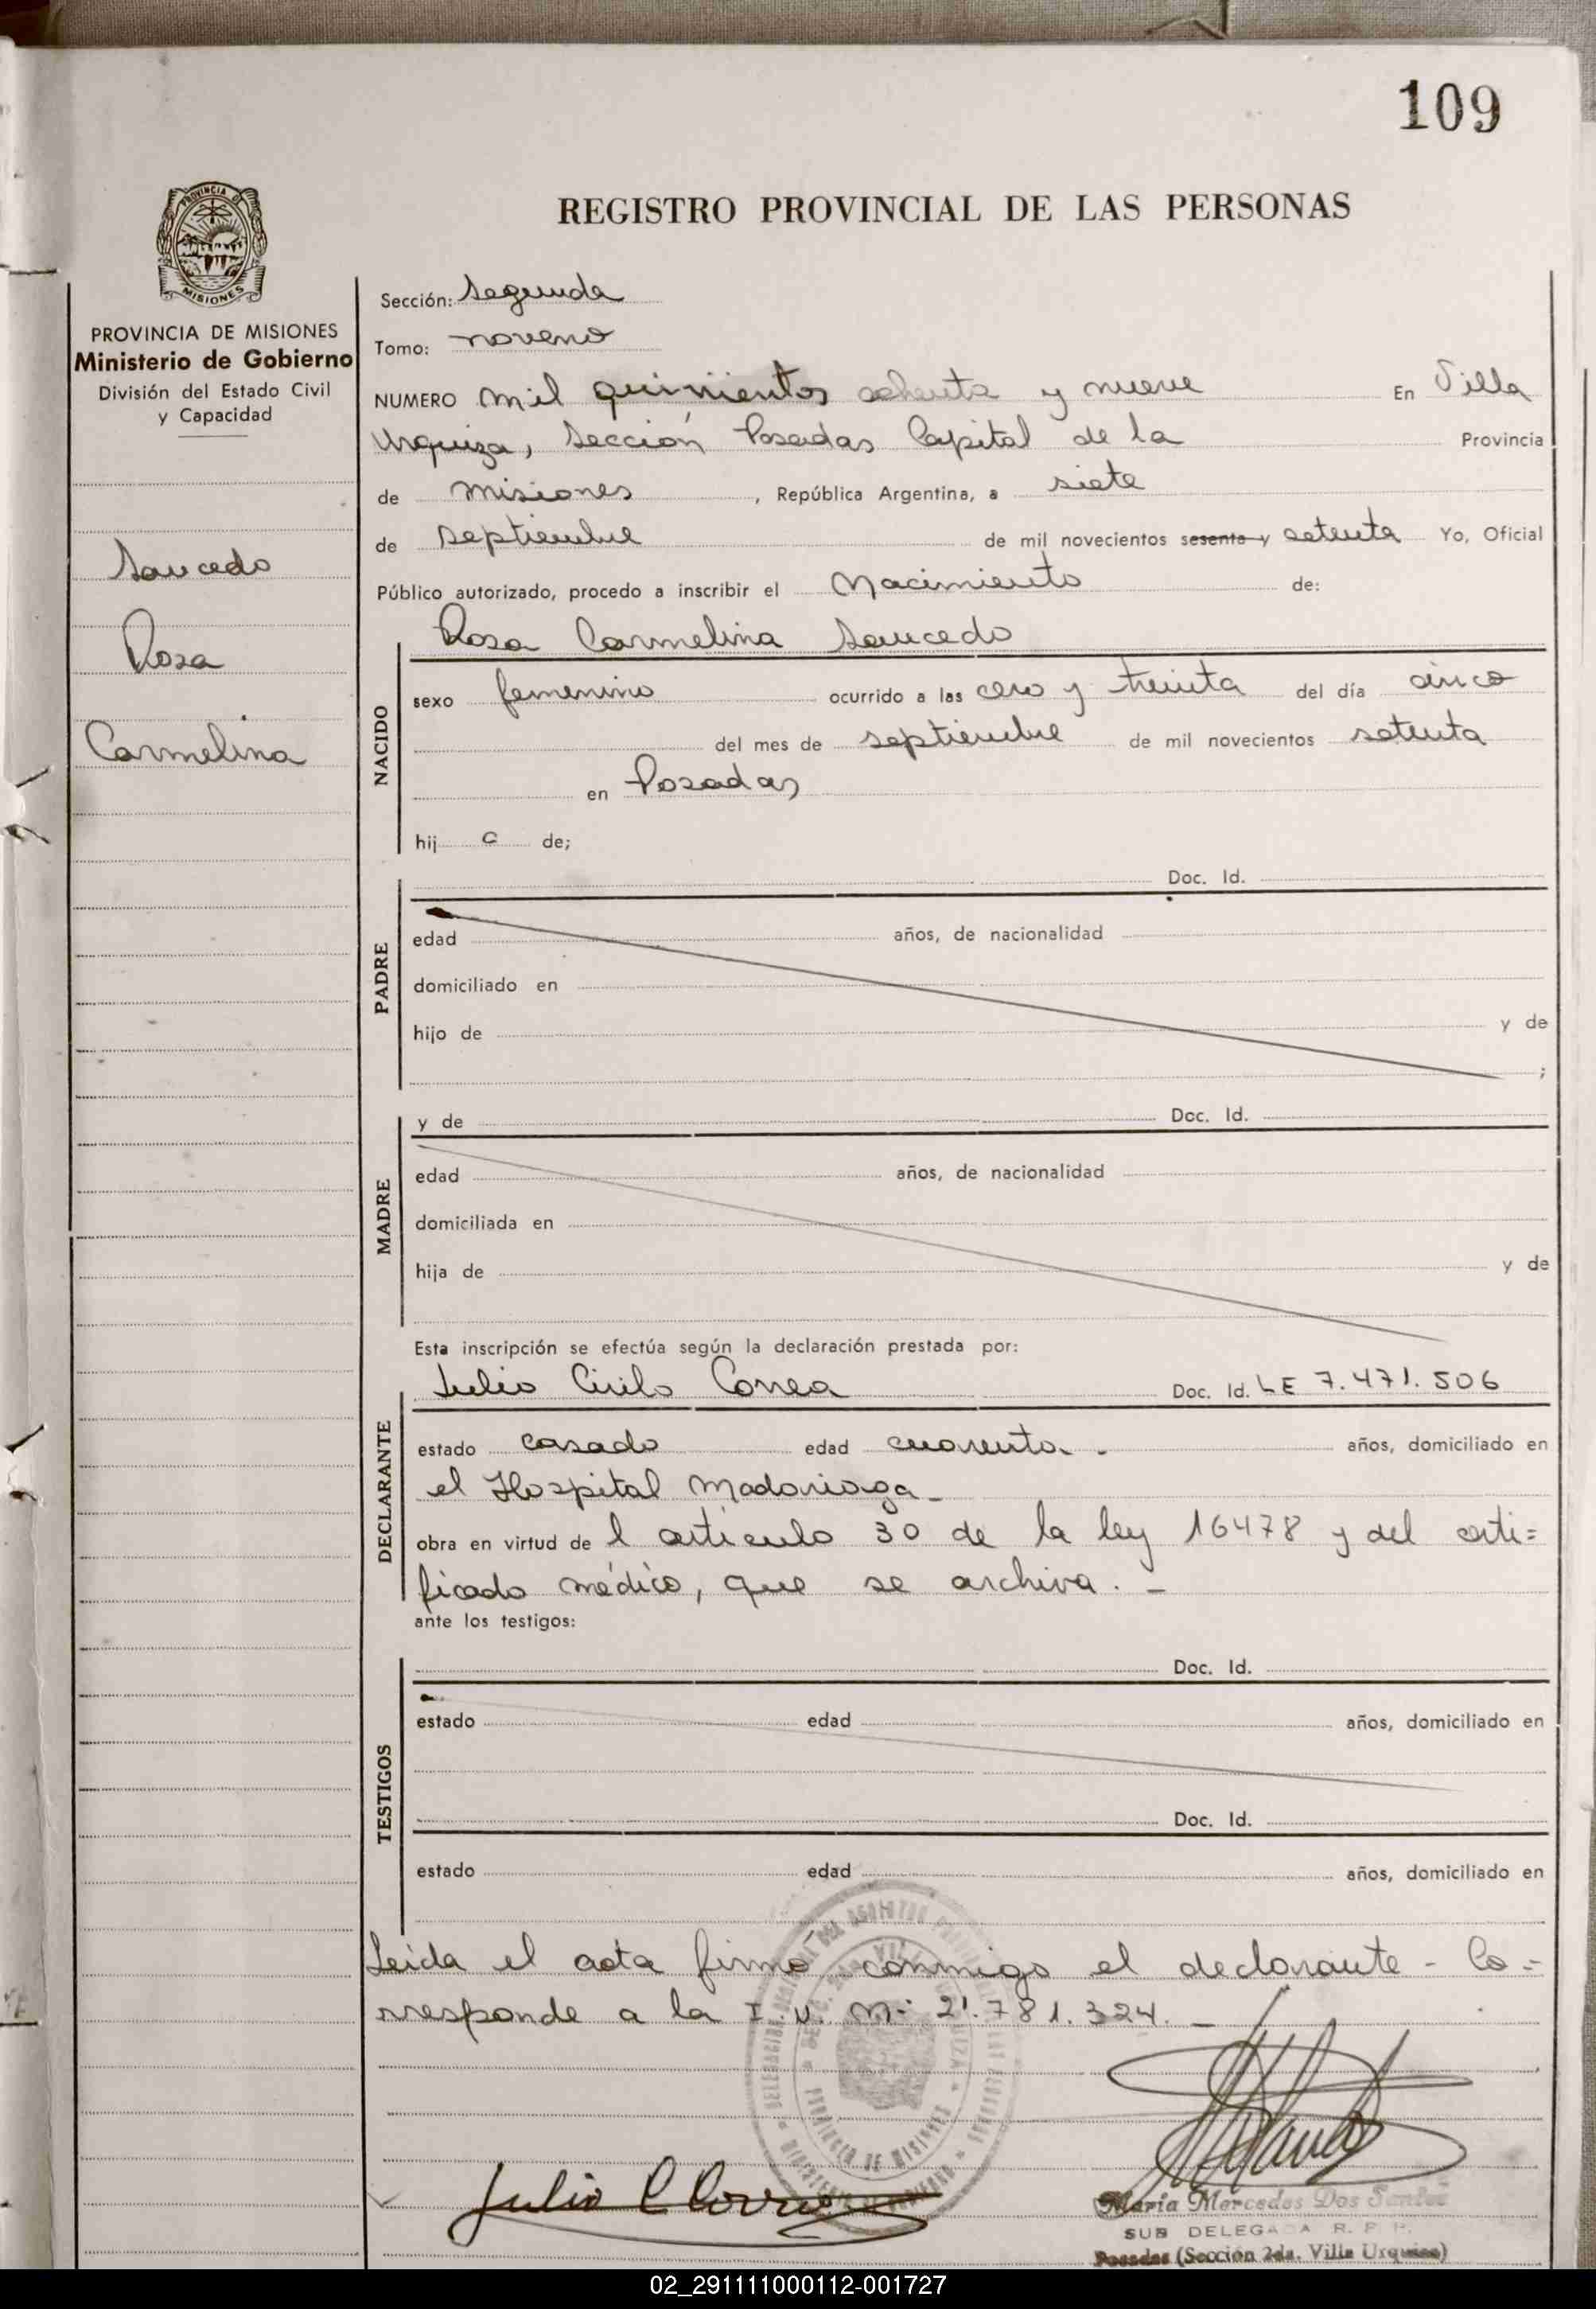 109
REGISTRO PROVINCIAL DE LAS PERSONAS
PROVINCIA
MISIONES
PROVINCIA DE MISIONES
Ministerio de Gobierno
División del Estado Civil
y Capacidad
Saucedo
Rosa
Carmelina
Sección: Segunda
Tomo: noveno
NUMERO mil quinientos ochenta y nueve En Villa
Urquiza, Sección Posadas Capital de la Provincia
de misiones, República Argentina, a siete
de septiembre de mil novecientos sesenta y setenta Yo, Oficial
Público autorizado, procedo a inscribir el Nacimiento de:
Rosa Carmelina Saucedo
NACIDO
sexo femenino ocurrido a las cero y treinta del día cinco
del mes de septiembre de mil novecientos setenta
en Posadas
hij a de;
PADRE
Doc. Id.
edad años, de nacionalidad
domiciliado en
hijo de y de
;
MADRE
y de Doc. Id.
edad años, de nacionalidad
domiciliada en
hija de y de
Esta inscripción se efectúa según la declaración prestada por:
DECLARANTE
Julio Cirilo Correa Doc. Id. LE 7.471.506
estado casado edad cuarenta. años, domiciliado en
el Hospital Madariaga
obra en virtud de l articulo 30 de la ley 16478 y del certi=
ficado médico, que se archiva. -
ante los testigos:
TESTIGOS
Doc. Id.
estado edad años, domiciliado en
Doc. Id.
estado edad años, domiciliado en
Leida el acta firmó conmigo el declarante - Co=
rresponde a la I. U. Nº 21.781.324. -
PROVINCIA DE MISIONES
Julio C Correa
María Mercedes Dos Santos
SUB DELEGADA R. P. P.
Posadas (Sección 2da. Villa Urquiza)
02_291111000112-001727